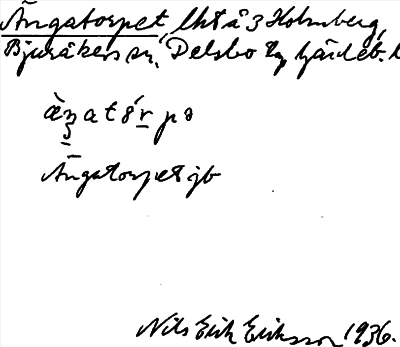 Ängatorpet, lht å 3 Holmberg,
Bjuråkers sn, Delsbo tg
Ängatorpet jb
Nils Erik Eriksson 1936.